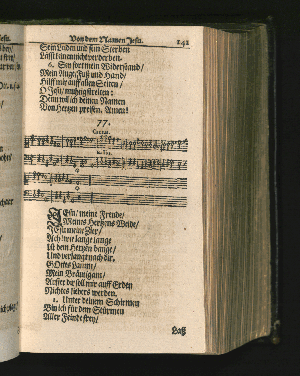 Von dem Namen Jesu. 142
Sein Leiden und sein Sterben
Läßt mich nicht verderben.
6. Sey ferr mein Widerstand/
Mein Auge/Fuß und Hand/
Hilff mir auff allen Seiten/
O Jesu/ streiten:
Denn wil ich deinen Namen
Von Hertzen preisen. Amen!
77.
Cantus.
Bassus.
JEsu/ meine Freude/
Meines Hertzens Weide/
JEsu meine Zier/
Ach/ wie lange/ lange
Ist dem Hertzen bange/
Und verlangt nach dir,
GOttes Lamm/
Mein Bräutigam/
Ausser dir sol mir auff Erden
Nichtes liebers werden.
2. Unter deinem Schirmen
Bin ich für dem Stürmen
Aller Feinde frey/
Laß